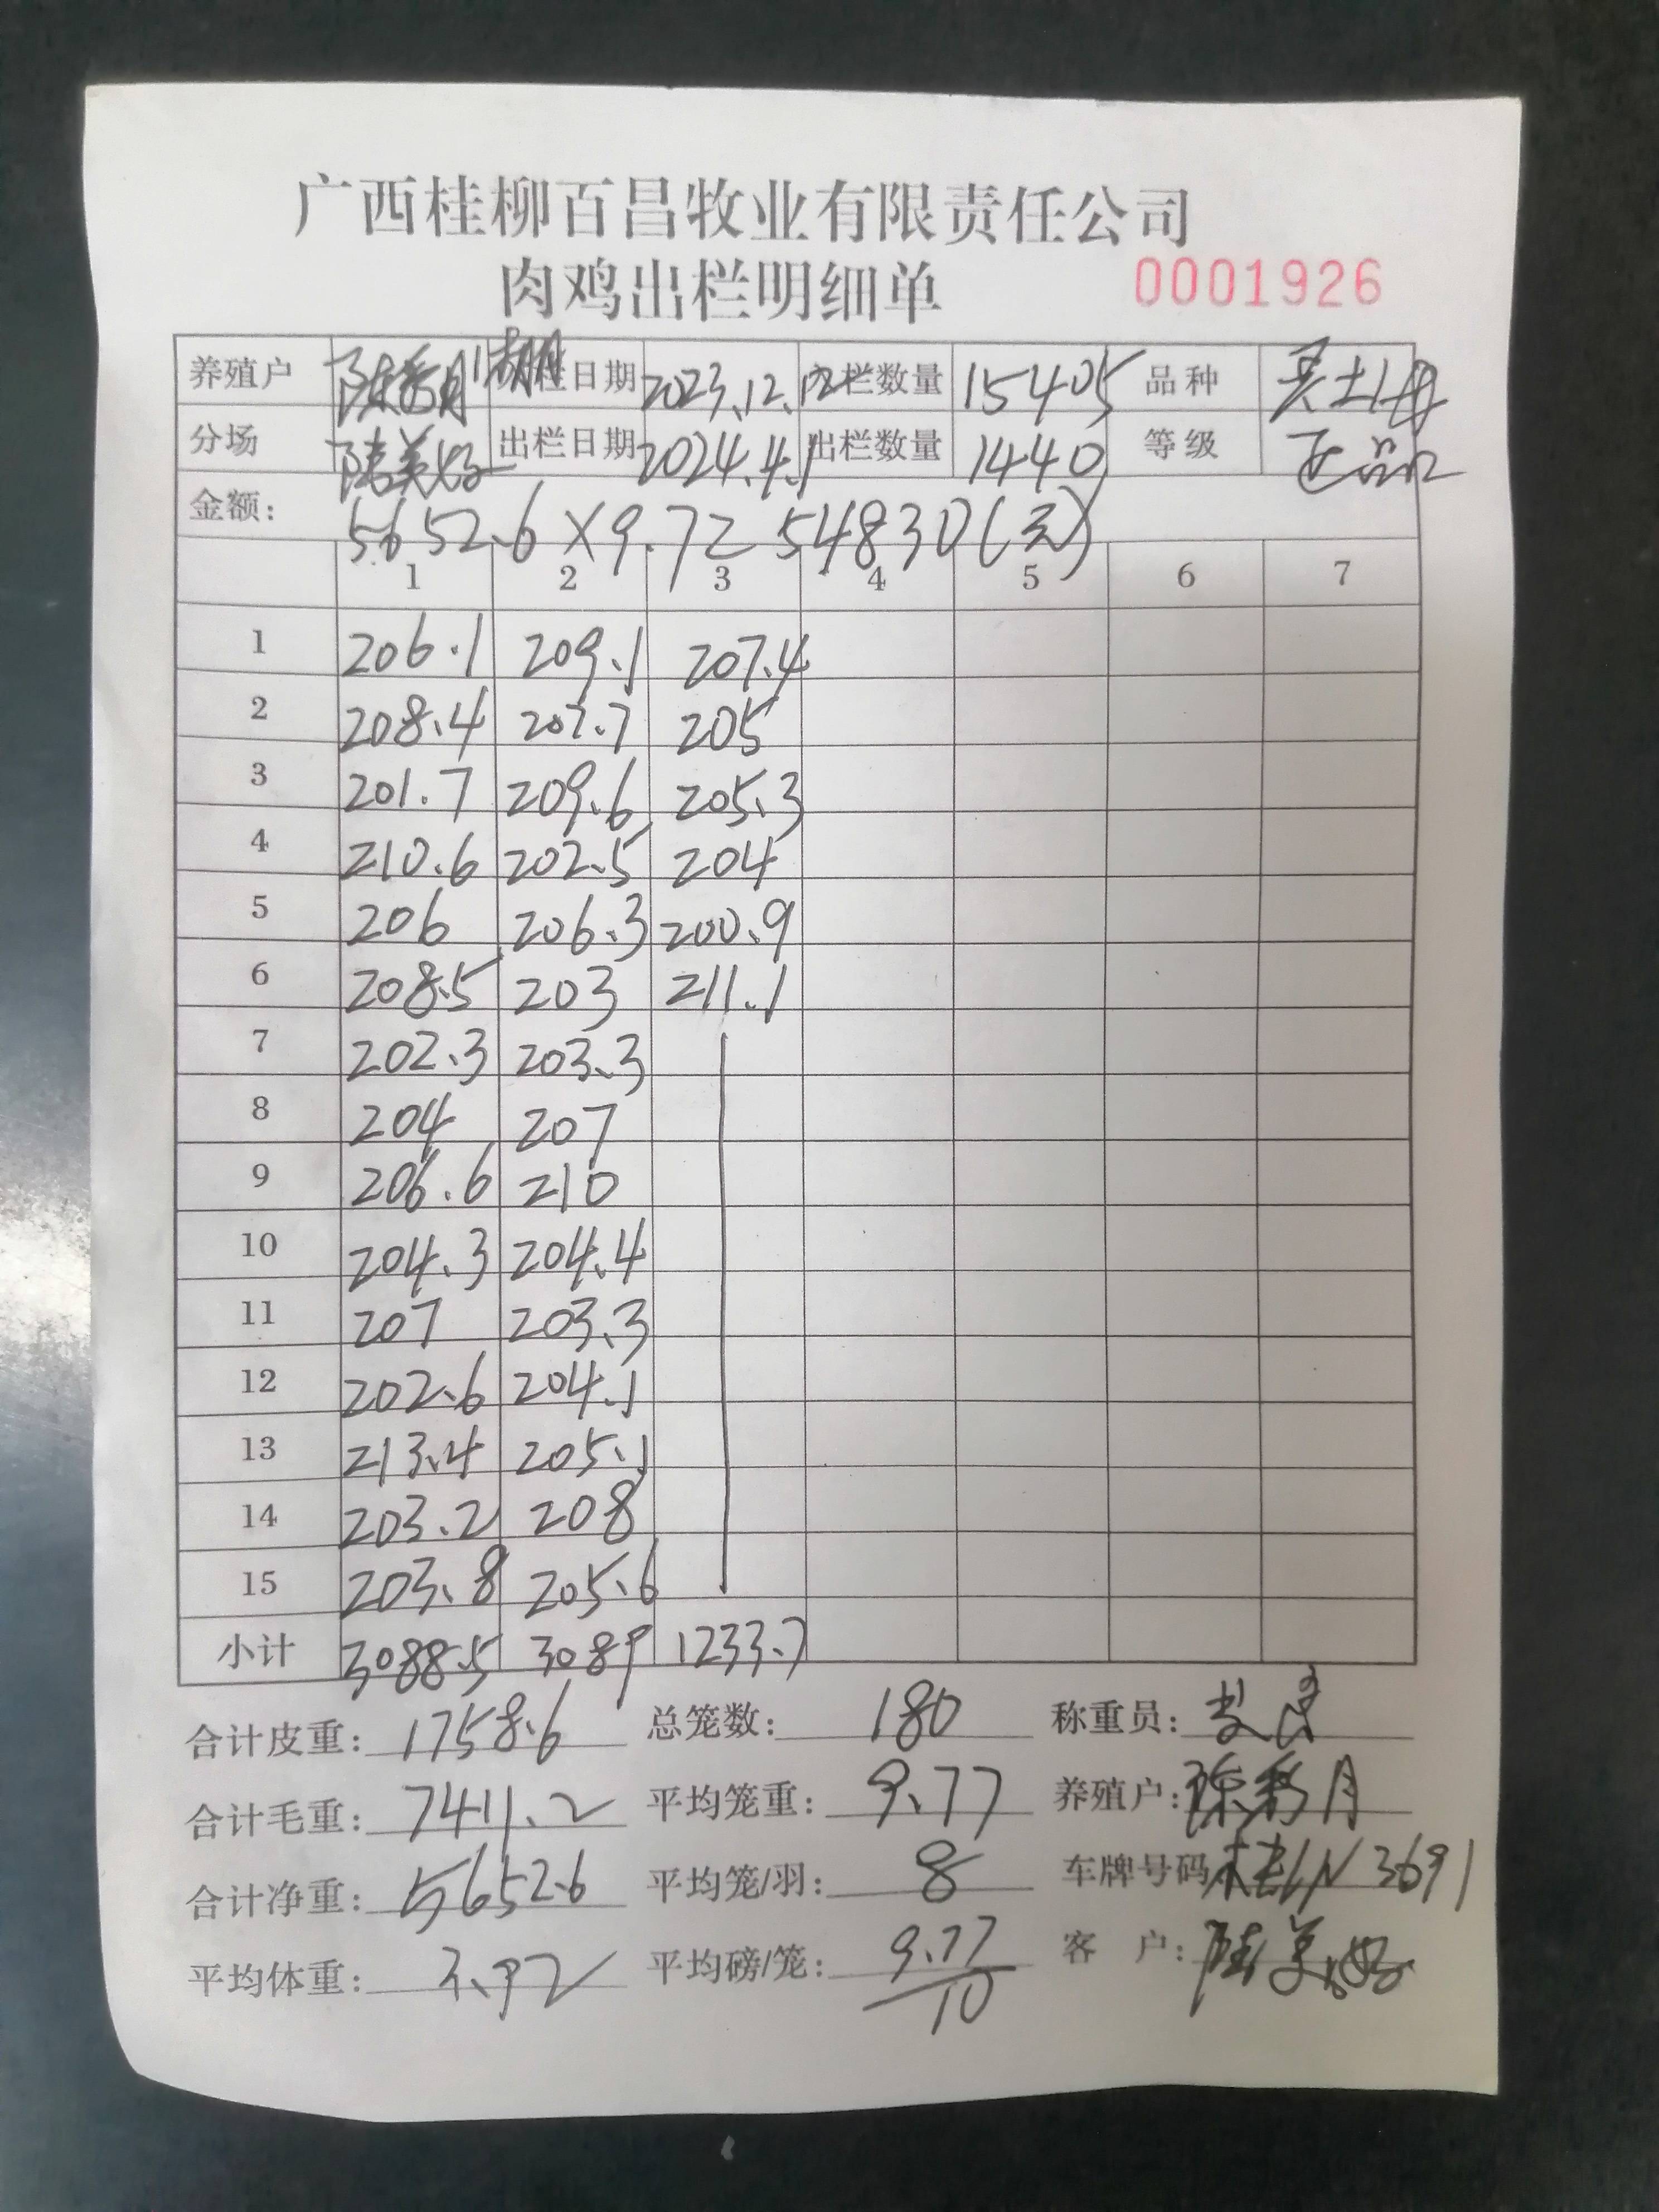 广西桂柳百昌牧业有限责任公司
肉鸡出栏明细单 0001926
养殖户 栏日期 2023.12.12 栏数量 15405 品种
分场 陆美好 出栏日期 2024.4.1 出栏数量 1440 等级 正品
金额: 5652.6×9.7= 54830(元)
1 2 3 4 5 6 7
1 206.1 209.1 207.4
2 208.4 207.7 205
3 201.7 209.6 205.3
4 210.6 202.5 204
5 206 206.3 200.9
6 208.5 203 211.1
7 202.3 203.3
8 204 207
9 206.6 210
10 204.3 204.4
11 207 203.3
12 202.6 204.1
13 213.4 205.1
14 203.2 208
15 203.8 205.6
小计 3088.5 3089 1233.7
合计皮重: 1758.6 总笼数: 180 称重员:
合计毛重: 7411.2 平均笼重: 9.77 养殖户: 陈彩月
合计净重: 5652.6 平均笼/羽: 8 车牌号码 桂LN3691
平均体重: 3.92 平均磅/笼: 9.77/10 客 户: 陆美好